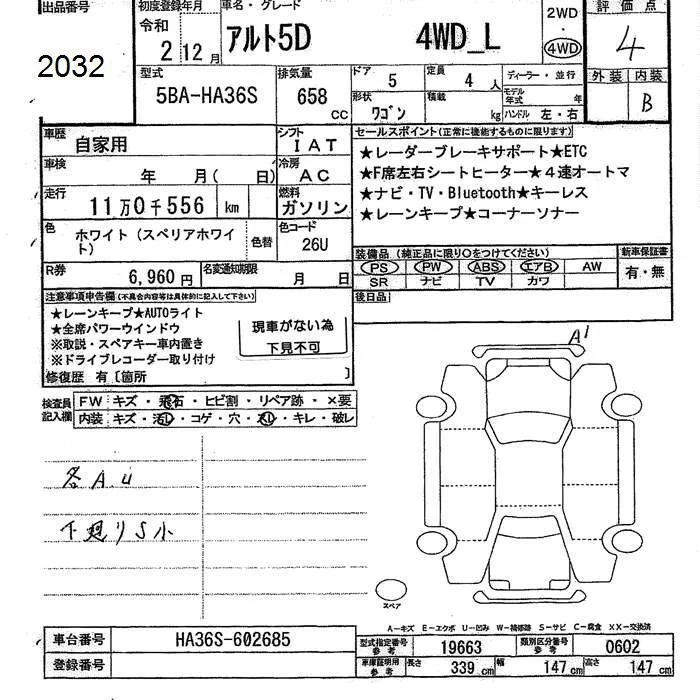 出品番号 初度登録年月 車名・グレード 評価点
2032 令和 2 12月 アルト5D 4WD_L 2WD・4WD 4
型式 排気量 ドア 5 定員 4 人 ディーラー・並行 外装 内装
5BA-HA36S 658 CC 形状 ワゴン 積載 kg モデル年式 年 ハンドル 左・右 B
車歴 自家用 シフト IAT セールスポイント(正常に機能するものに限ります)
車検 年 月( 日) 冷房 AC
★レーダーブレーキサポート★ETC
★F席左右シートヒーター★4速オートマ
★ナビ・TV・Bluetooth★キーレス
★レーンキープ★コーナーソナー
走行 11万0千556 km 燃料 ガソリン
色 ホワイト(スペリアホワイト) 色替 色コード 26U
装備品(純正品に限り○をつけてください) 新車保証書
PS PW ABS エアB AW 有・無
SR ナビ TV カワ
R券 6,960円 名変通知期限 月 日
後日品
注意事項申告欄(不具合内容等は具体的に記入して下さい)
★レーンキープ★AUTOライト
★全席パワーウインドウ
※取説・スペアキー車内置き
※ドライブレコーダー取り付け
現車がない為
下見不可
修復歴 有〔箇所 〕
検査員記入欄 FW キズ・飛石・ヒビ割・リペア跡・×要
内装 キズ・汚レ・コゲ・穴・スレ・キレ・破レ
各AU
下廻りS小
A1
スペア
A-キズ E-エクボ U-凹み W-補修跡 S-サビ C-腐食 XX-交換済
車台番号 HA36S-602685 型式指定番号 参考 19663 類別区分番号 参考 0602
登録番号 車庫証明用 参考 長さ 339 cm 幅 147 cm 高さ 147 cm